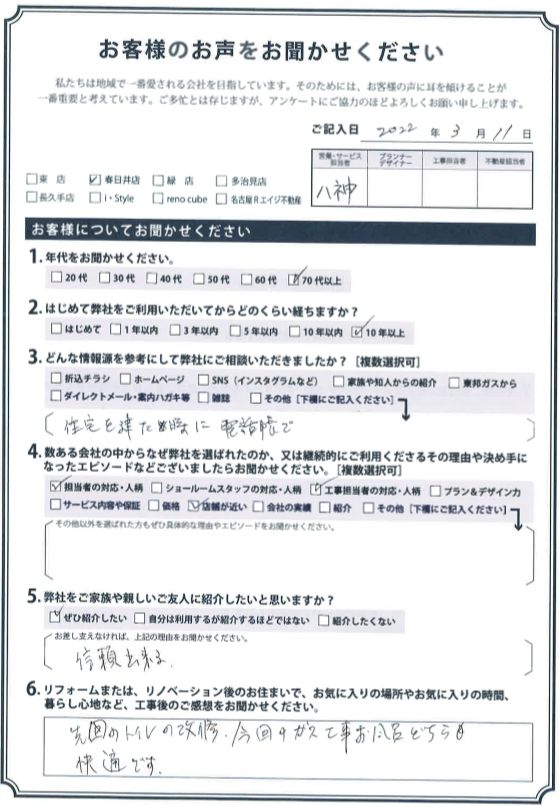 お客様のお声をお聞かせください
私たちは地域で一番愛される会社を目指しています。そのためには、お客様の声に耳を傾けることが
一番重要と考えています。ご多忙とは存じますが、アンケートにご協力のほどよろしくお願い申し上げます。
ご記入日 2022 年 3 月 11 日
営業・サービス担当者 プランナーデザイナー 工事担当者 不動産担当者
八神
□東 店 ☑春日井店 □緑 店 □多治見店
□長久手店 □i・Style □reno cube □名古屋Rエイジ不動産
お客様についてお聞かせください
1. 年代をお聞かせください。
□20代 □30代 □40代 □50代 □60代 ☑70代以上
2. はじめて弊社をご利用いただいてからどのくらい経ちますか?
□はじめて □1年以内 □3年以内 □5年以内 □10年以内 ☑10年以上
3. どんな情報源を参考にして弊社にご相談いただきましたか?[複数選択可]
□折込チラシ □ホームページ □SNS(インスタグラムなど) □家族や知人からの紹介 □東邦ガスから
□ダイレクトメール・案内ハガキ等 □雑誌 □その他[下欄にご記入ください]
住宅を建た時に電話帳で
4. 数ある会社の中からなぜ弊社を選ばれたのか、又は継続的にご利用くださるその理由や決め手に
なったエピソードなどございましたらお聞かせください。[複数選択可]
☑担当者の対応・人柄 □ショールームスタッフの対応・人柄 ☑工事担当者の対応・人柄 □プラン&デザイン力
□サービス内容や保証 □価格 ☑店舗が近い □会社の実績 □紹介 □その他[下欄にご記入ください]
その他以外を選ばれた方もぜひ具体的な理由やエピソードをお聞かせください。
5. 弊社をご家族や親しいご友人に紹介したいと思いますか?
☑ぜひ紹介したい □自分は利用するが紹介するほどではない □紹介したくない
お差し支えなければ、上記の理由をお聞かせください。
信頼出来る.
6. リフォームまたは、リノベーション後のお住まいで、お気に入りの場所やお気に入りの時間、
暮らし心地など、工事後のご感想をお聞かせください。
先回のトイレの改修.今回のガス工事お風呂どちらも
快適です.